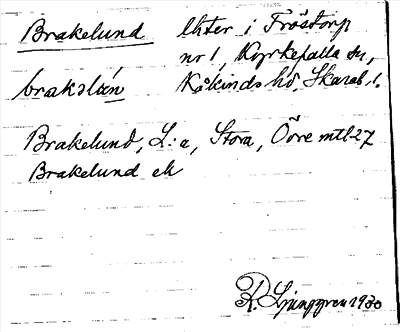 Brakelund
lhter i Fröstorp
nr 1, Kyrkefalla sn,
brakəlœ́n
Kåkinds hd, Skarab. l.
Brakelund, L:a, Stora, Övre mtl 27
Brakelund ek
R. Ljunggren 1930